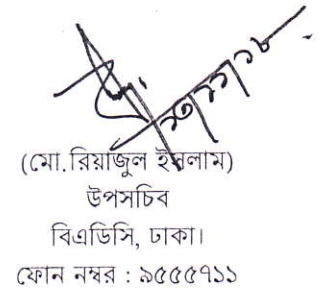 ১৩/১১/১৮
(মো.রিয়াজুল ইসলাম)
উপসচিব
বিএডিসি, ঢাকা।
ফোন নম্বর : ৯৫৫৫৭১১